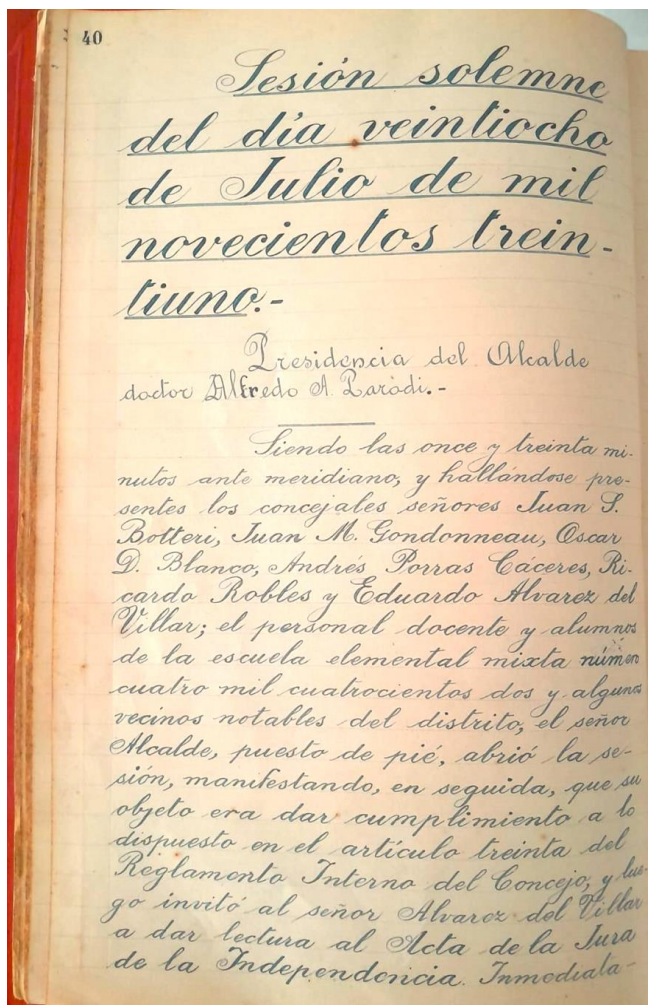 40
Sesión solemne
del día veintiocho
de Julio de mil
novecientos trein-
tiuno.-
Presidencia del Alcalde
doctor Alfredo A. Parodi.-
Siendo las once y treinta mi-
nutos ante meridiano, y hallándose pre-
sentes los concejales señores Juan S.
Botteri, Juan M. Gondonneau, Oscar
D. Blanco, Andrés Porras Cáceres, Ri-
cardo Robles y Eduardo Alvarez del
Villar; el personal docente y alumnos
de la escuela elemental mixta número
cuatro mil cuatrocientos dos y algunos
vecinos notables del distrito, el señor
Alcalde, puesto de pié, abrió la se-
sión, manifestando, en seguida, que su
objeto era dar cumplimiento a lo
dispuesto en el artículo treinta del
Reglamento Interno del Concejo, y lue-
go invitó al señor Alvarez del Villar
a dar lectura al Acta de la Jura
de la Independencia. Inmediata-